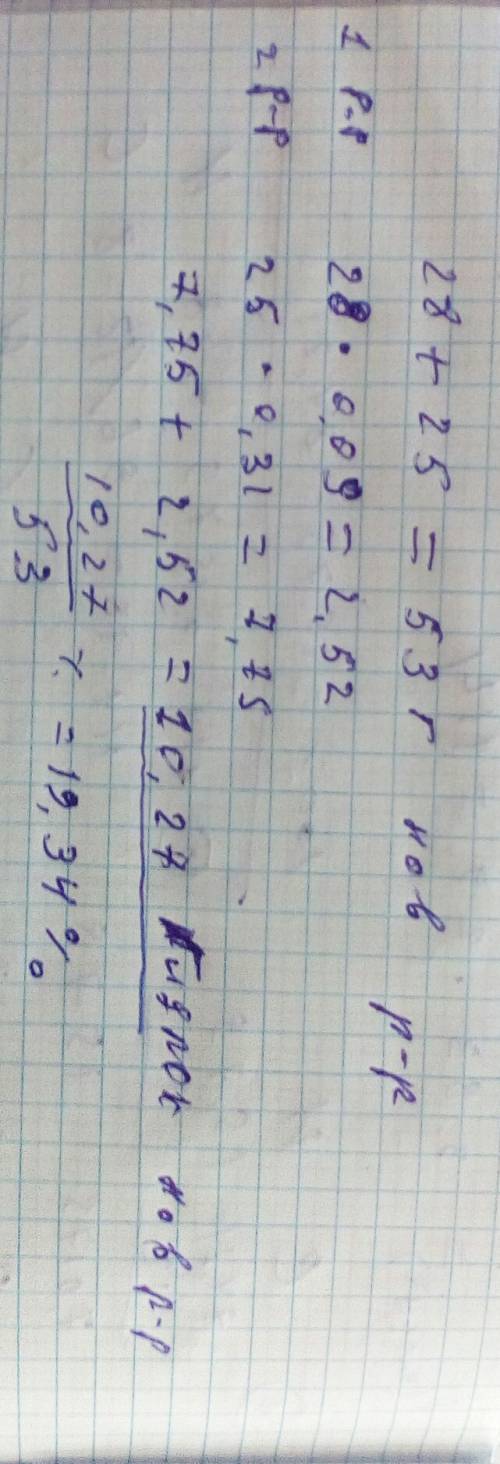 28 + 25 = 53 г нов р-р
1 р-р 28 · 0,09 = 2,52
2 р-р 25 · 0,31 = 7,75
7,75 + 2,52 = 10,27 гидрок нов р-р
10,27
53 % = 19,34 %